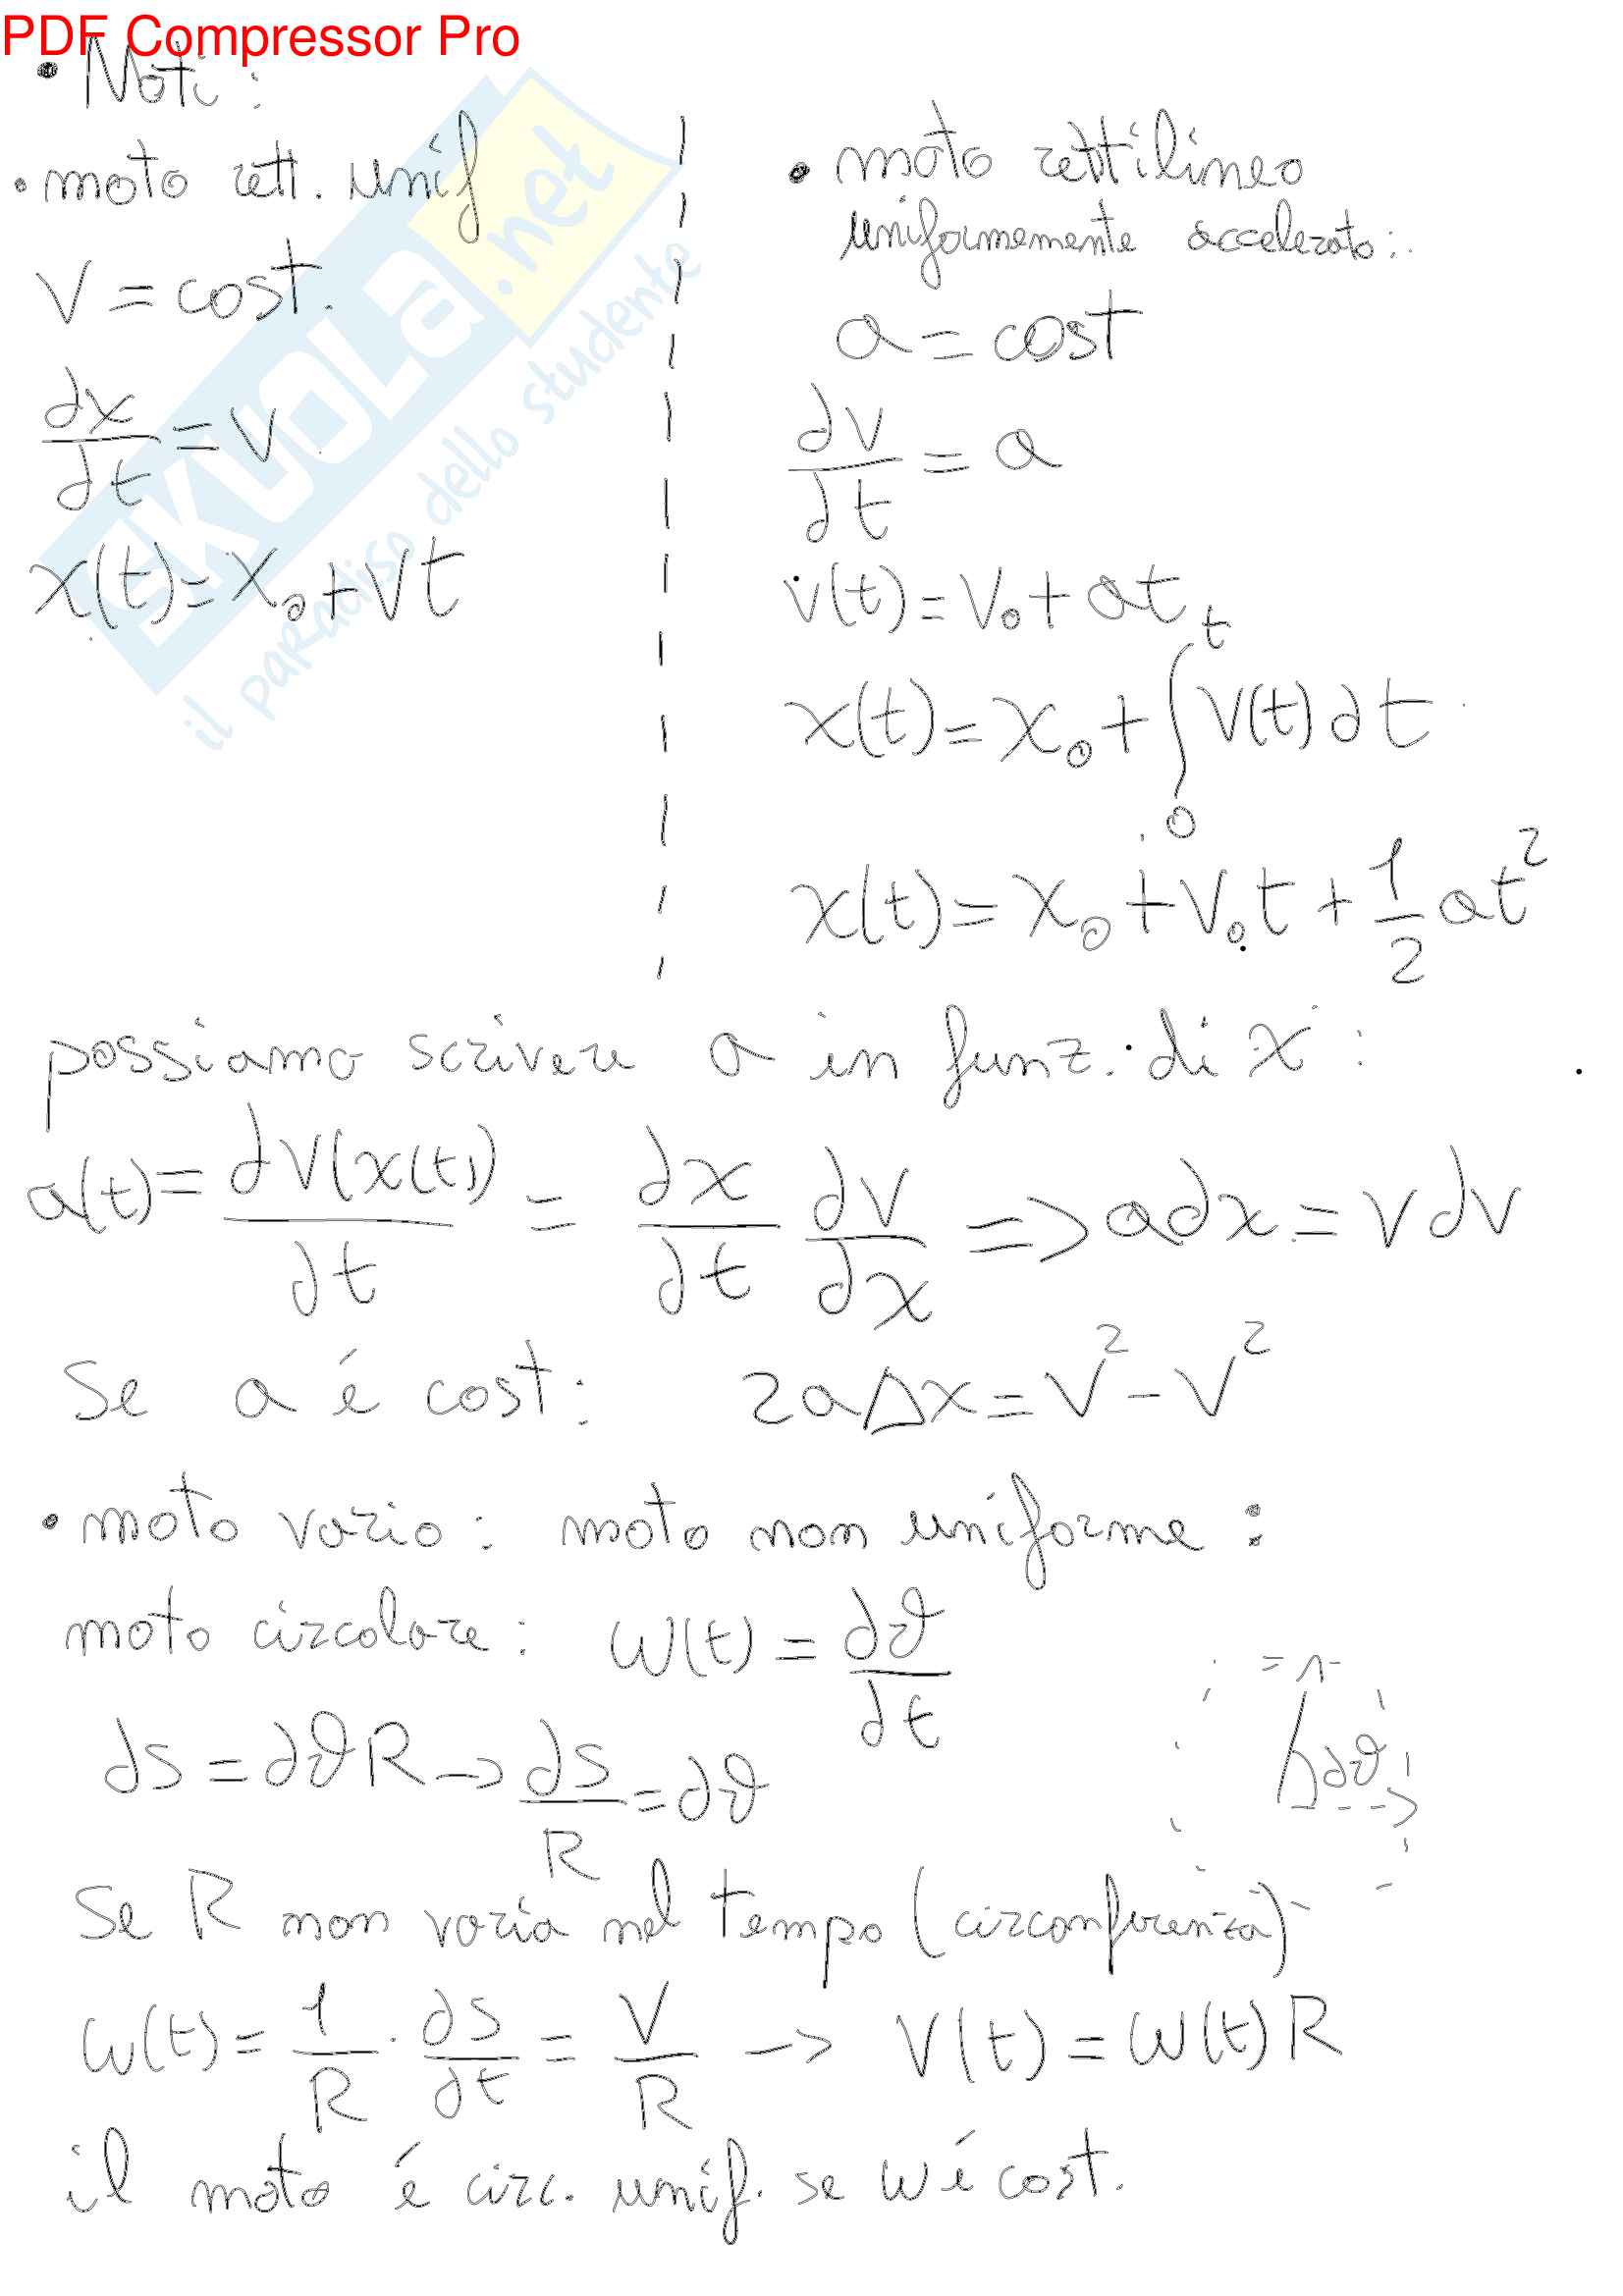 PDF Compressor Pro
• Moti:
• moto rett. unif
v = cost.
dx/dt = v
x(t) = x₀ + vt
• moto rettilineo
uniformemente accelerato:
a = cost
dv/dt = a
v(t) = v₀ + at
x(t) = x₀ + ∫₀ᵗ v(t) dt
x(t) = x₀ + v₀t + 1/2 at²
possiamo scrivere a in funz. di x:
a(t) = dv(x(t))/dt = dx/dt dv/dx => adx = vdv
Se a é cost: 2aΔx = v² - v²
• moto vario: moto non uniforme:
moto circolare: ω(t) = dϑ/dt
ds = dϑR -> ds/R = dϑ
dϑ
Se R non varia nel tempo (circonferenza)
ω(t) = 1/R · ds/dt = v/R -> v(t) = ω(t)R
il moto é circ. unif. se ω é cost.
SKUOLA.net
il paradiso dello studente